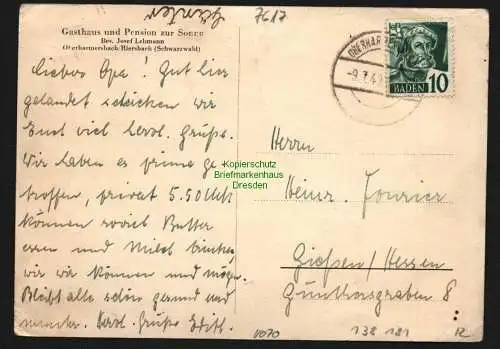 Günter
7617
Gasthaus und Pension zur Sonne
Bes. Josef Lehmann
Oberharmersbach/Riersbach (Schwarzwald)
Liebes Opa! Gut hier
gelandet schicken wir
Euch viel herzl. Grüße.
Wir haben es prima ge-
troffen, privat 5.50 Uhr
können soviel Butter
essen und Milch trinken
wie wir können und mögen.
Bleibt alle schön gesund und
munter. Herzl. Grüße Edith.
OBERHAR
-9.7.4
BADEN
10
Herrn
Heinr. Fourier
Gießen/Hessen
Günthersgraben 8
Kopierschutz
Briefmarkenhaus
Dresden
138 181